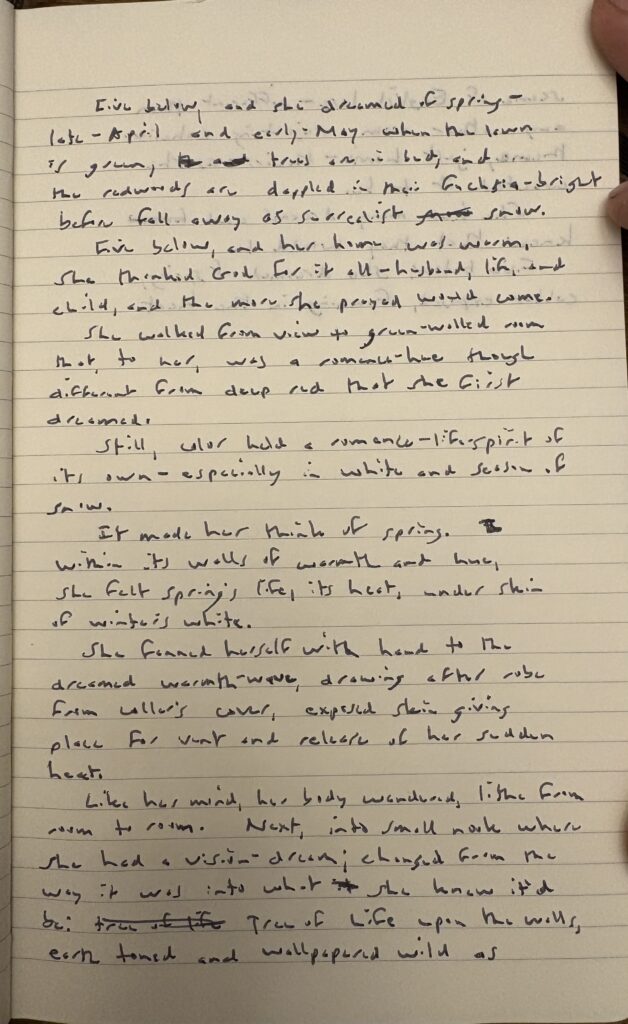 Five below, and she dreamed of spring-
late-April and early-May when the lawn
is green, trees are in bud, and
the redwoods are dappled in their fuchsia-bright
before fall away as surrealist snow.
Five below, and her home was warm,
she thanked God for it all-husband, life, and
child, and the more she prayed would come.
She walked from view to green-walled room
that, to her, was a romance-hue though
different from deep red that she first
dreamed.
Still, color held a romance-life-spirit of
its own-especially in white and season of
snow.
It made her think of spring.
within its walls of warmth and hue,
she felt spring's life, its heat, under skin
of winter's white.
She fanned herself with hand to the
dreamed warmth-wave, drawing after robe
from collar's cover, exposed skin giving
place for vent and release of her sudden
heat.
Like her mind, her body wandered, lithe from
room to room. Next, into small nook where
she had a vision-dream; changed from the
way it was into what she knew it'd
be: Tree of Life upon the walls,
earth toned and wallpapered wild as